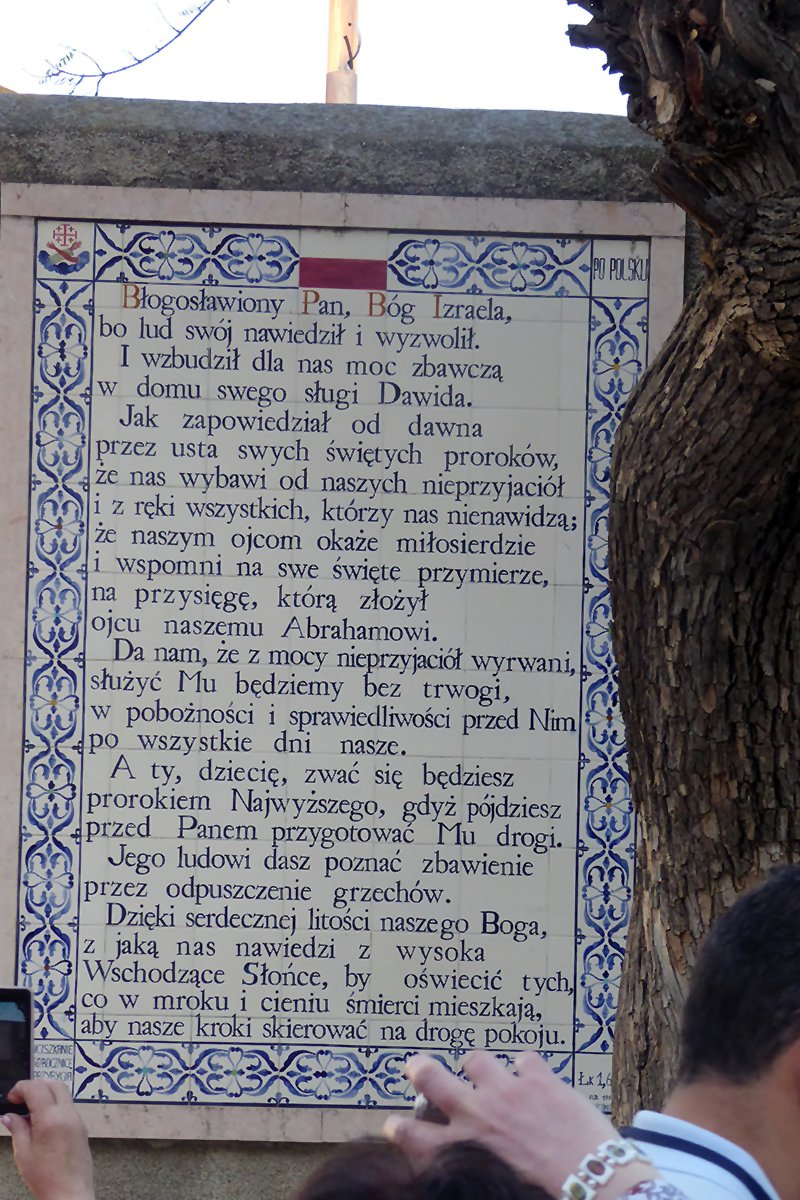 PO POLSKU
Błogosławiony Pan, Bóg Izraela,
bo lud swój nawiedził i wyzwolił.
I wzbudził dla nas moc zbawczą
w domu swego sługi Dawida.
Jak zapowiedział od dawna
przez usta swych świętych proroków,
że nas wybawi od naszych nieprzyjaciół
i z ręki wszystkich, którzy nas nienawidzą;
że naszym ojcom okaże miłosierdzie
i wspomni na swe święte przymierze,
na przysięgę, którą złożył
ojcu naszemu Abrahamowi.
Da nam, że z mocy nieprzyjaciół wyrwani,
służyć Mu będziemy bez trwogi,
w pobożności i sprawiedliwości przed Nim
po wszystkie dni nasze.
A ty, dziecię, zwać się będziesz
prorokiem Najwyższego, gdyż pójdziesz
przed Panem przygotować Mu drogi.
Jego ludowi dasz poznać zbawienie
przez odpuszczenie grzechów.
Dzięki serdecznej litości naszego Boga,
z jaką nas nawiedzi z wysoka
Wschodzące Słońce, by oświecić tych,
co w mroku i cieniu śmierci mieszkają,
aby nasze kroki skierować na drogę pokoju.
Łk 1,6